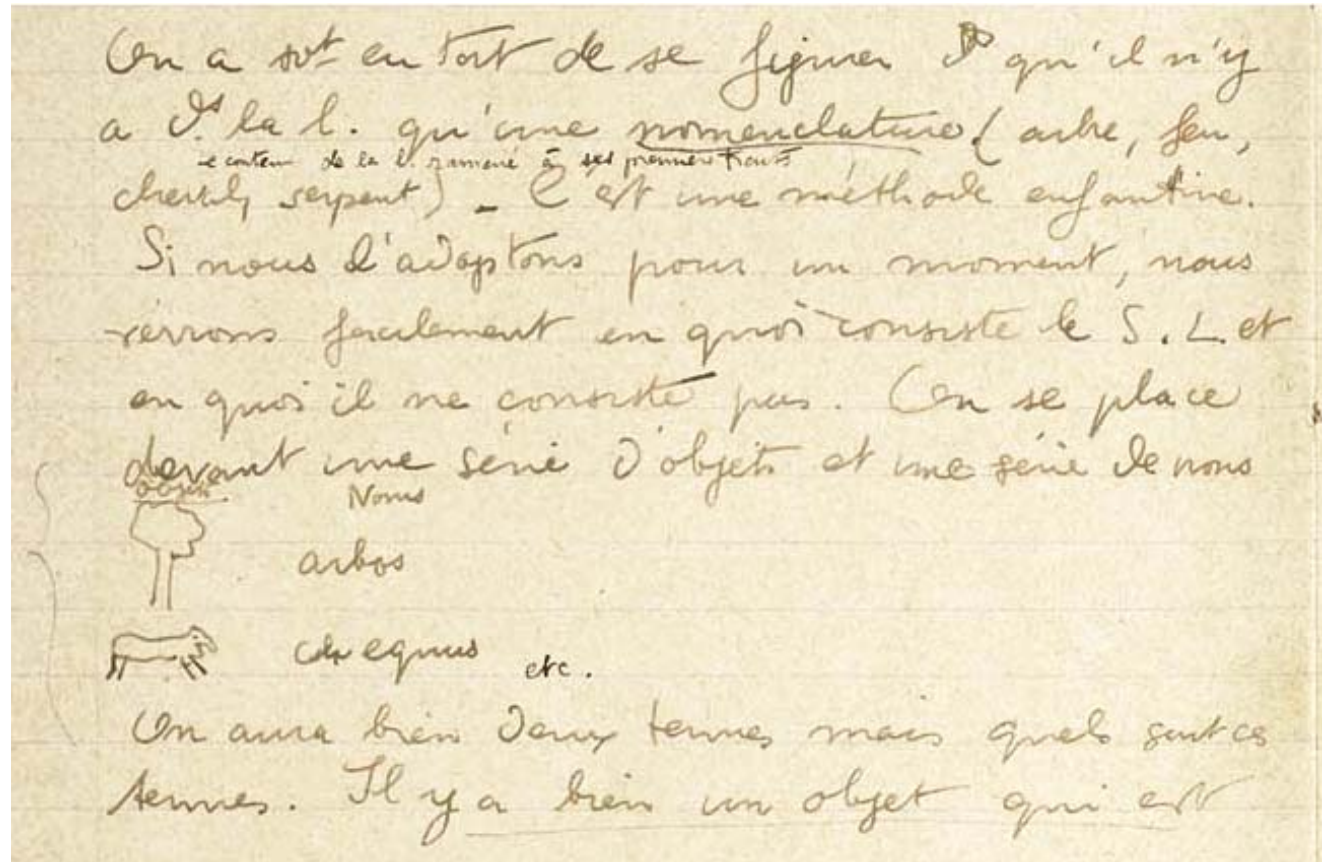 On a svt eu tort de se figurer qu'il n'y
a ds la l. qu'une nomenclature (arbre, feu,
le contenu de la l. ramené à ses premiers traits
cheval, serpent) _ C'est une méthode enfantine.
Si nous l'adoptons pour un moment, nous
verrons facilement en quoi consiste le S. L. et
en quoi il ne consiste pas. On se place
devant une série d'objets et une série de noms
objets Noms
arbos
equus etc.
On aura bien deux termes mais quels sont ces
termes. Il y a bien un objet qui est